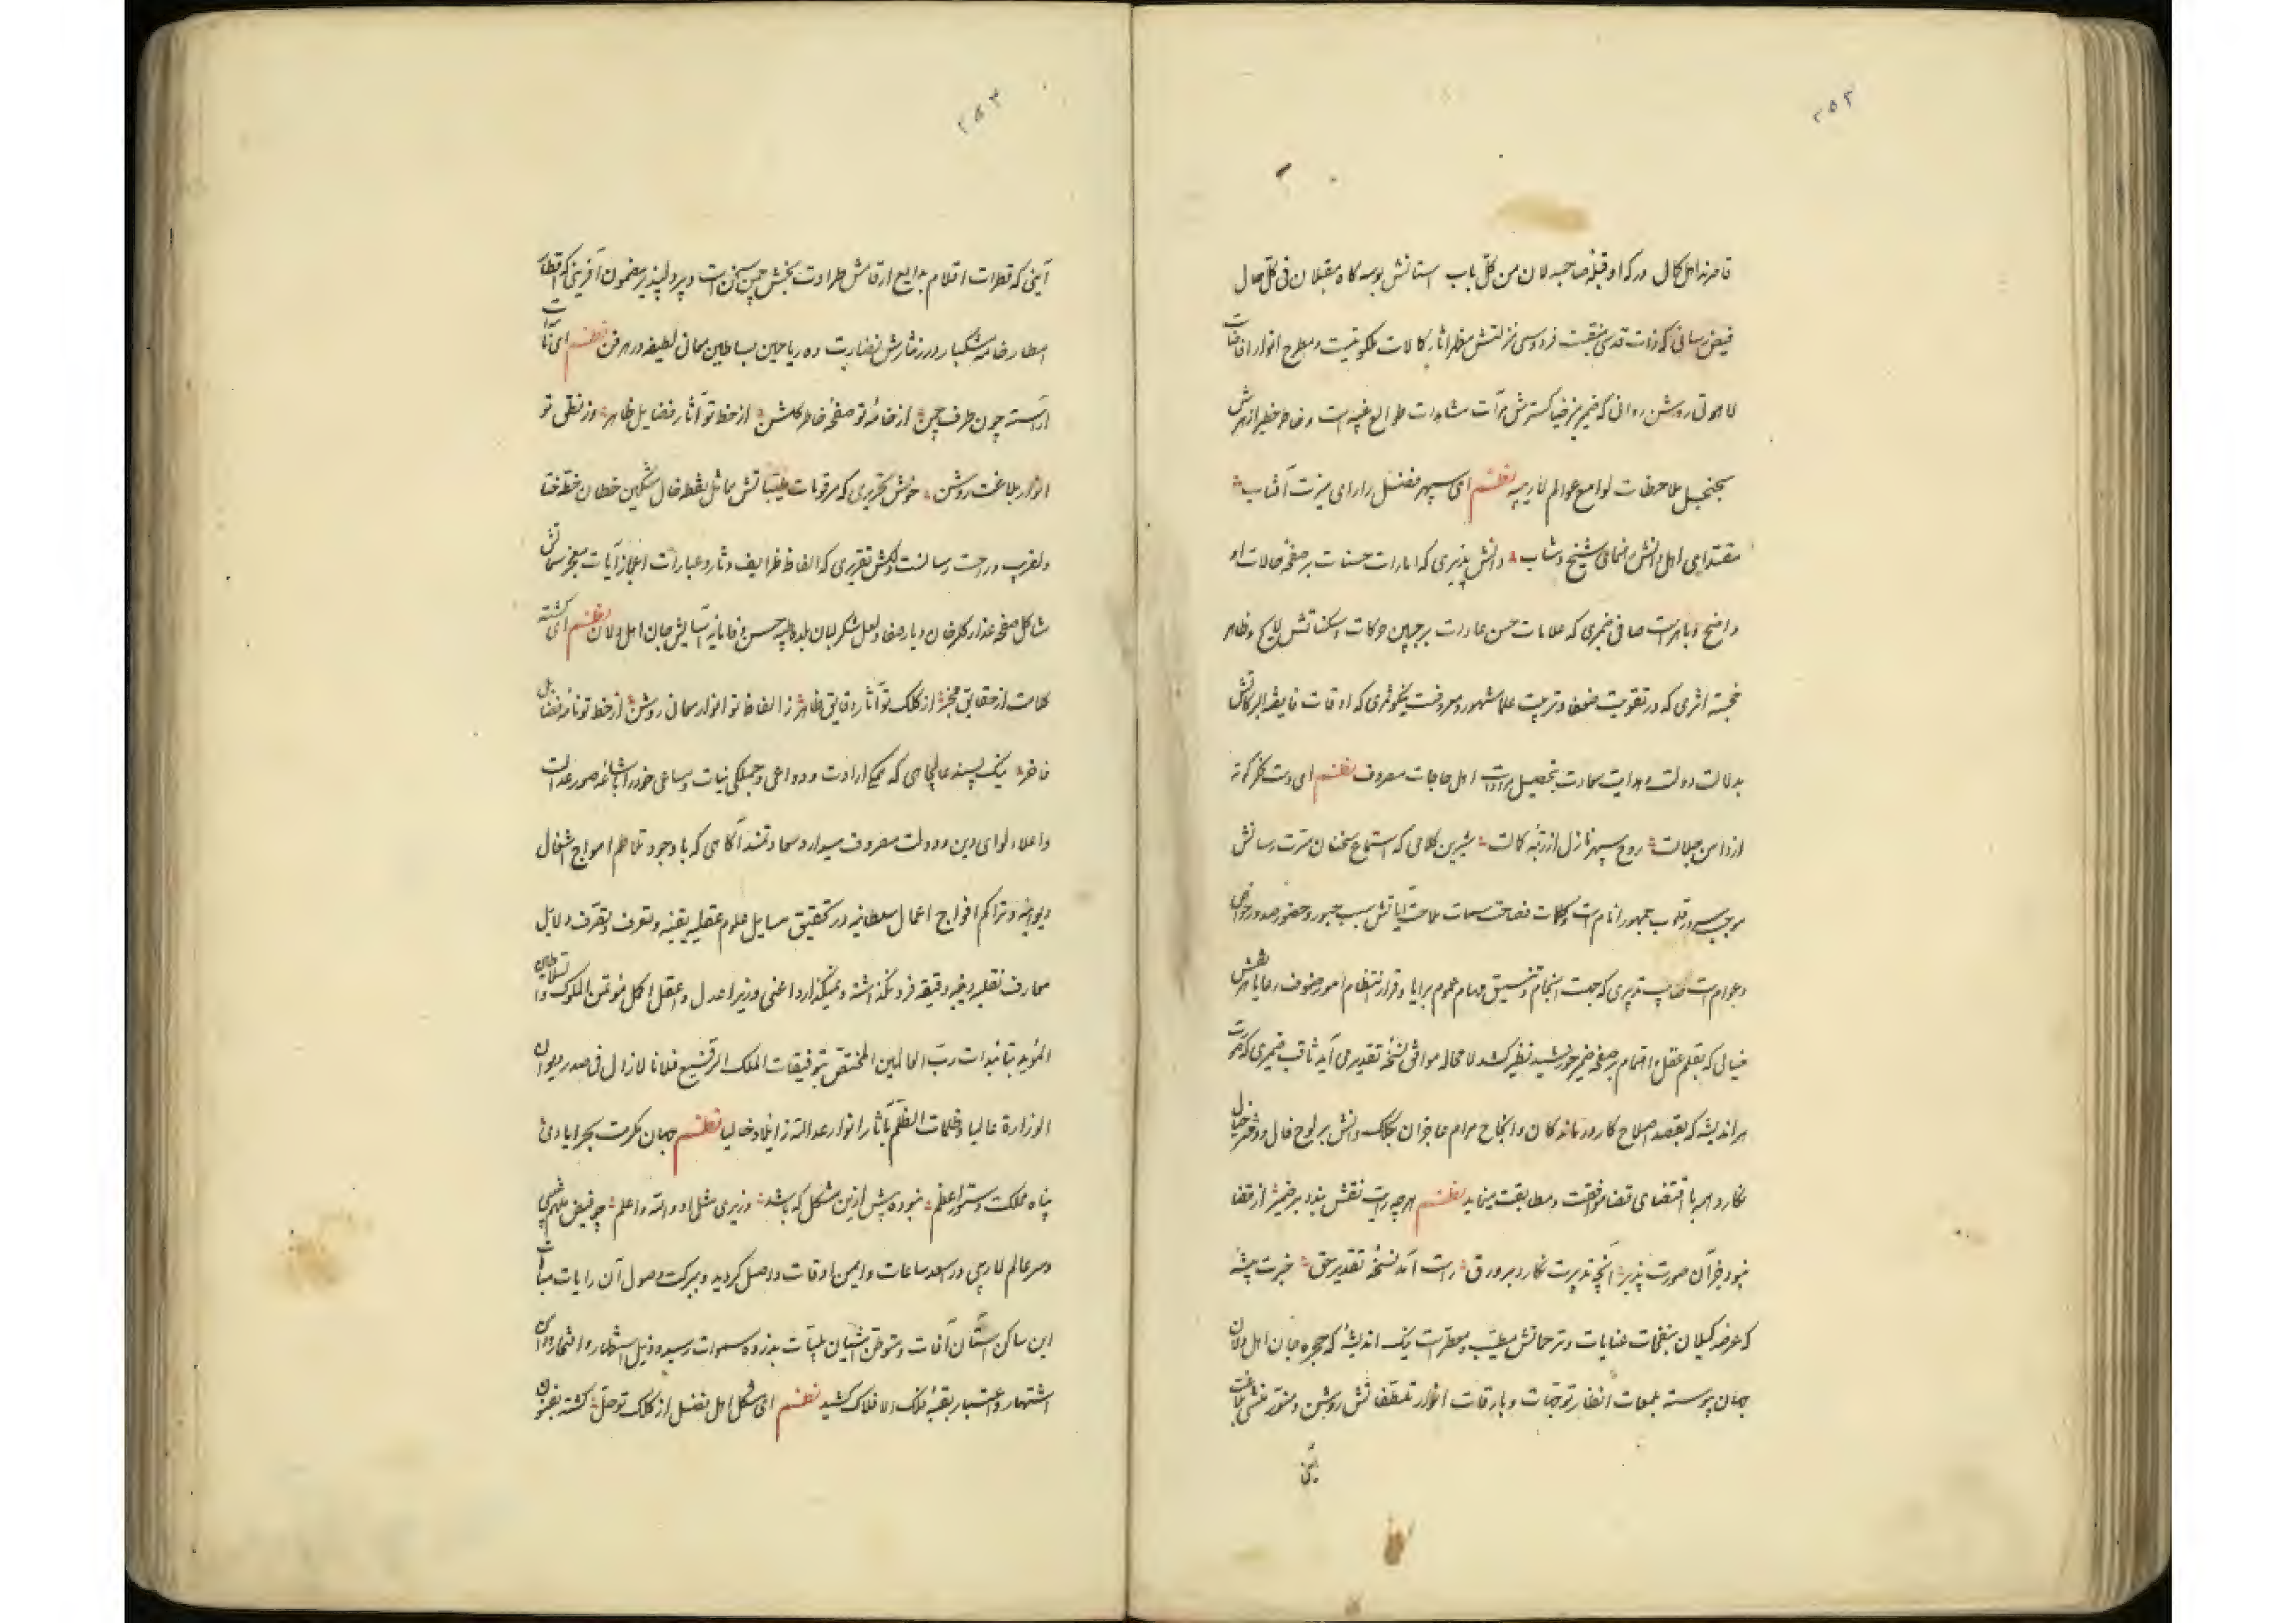 ۲۵۲
قاصرند اهل کمال درگه او قبلهٔ صاحبدلان من کلّ باب آستانش بوسه گاه مقبلان فی کلّ حال
فیض رسانی که ذات قدسی منقبت فردوسی منزلتش مظهر اثار کمالات ملکوتیست و مطرح انوار افاضات
لاهوتی روشن روانی که ضمیر منیر ضیا گسترش مرآت مشاهدات طوالع غیبیه است و خاطر خطیر ازهرش
سجنجل ملاحظات لوامع عوالم لاریبیه نظم ای سپهر فضل را رای منیرت آفتاب
مقتدای اهل دانش رهنمای شیخ و شاب دانش پذیری که امارات حسنات بر صفحهٔ حالات او
واضح و باهر است صافی ضمیری که علامات حسن عادات بر جبین حرکات و سکناتش لایح و ظاهر
خجسته اثری که در تقویت ضعفا و تربیت علما مشهور و معروفست نیکو ثمری که اوقات فایضه البرکاتش
بدلالت دولت و هدایت سعادت بتحصیل مرادات اهل حاجات مصروف نظم ای دست تفکر کوته
از دامن جلالت روح سپهر نازل از رتبهٔ کمالت شیرین کلامی که استماع سخنان مسرت رسانش
موجب سرور قلوب جمهور انام است و کلمات فصاحت سمات ملاحت آیاتش سبب حبور و حضور صدور خواص
و عوام است صایب تدبیری که جهت انجام و تنسیق مهام عموم برایا و قرار انتظام امور صنوف رعایا هر نقش
خیالی که بقلم عقل و اهتمام بر صفحهٔ ضمیر خورشید نظیر کشد لا محاله موافق نسخهٔ تقدیر می آید ثاقب ضمیری که صورت
هر اندیشه که بقصد اصلاح کار درماندگان و انجاح مرام عاجزان بکلک دانش بر لوح خیال و دفتر
نگارد همه با اقتضای قضا موافقت و مطابقت مینماید نظم هر چه رایت نقش بندد بر ضمیر از قضا
نبود جز آن صورت پذیر آنچه تدبیرت نگارد بر ورق راست آمد نسخهٔ تقدیر حق خبرت پیشه
که عرصه گیلان بنفحات عنایات و ترحماتش مطیّب و معطر است نیک اندیشهٔ که حجره جان اهل دلان
جهان پیوسته بلمعات انظار توجهات و بارقات انوار تلطفاتش روشن و منور منشی بلاغت
آیینی
۲۵۳
آیینی که قطرات اقلام بدایع ارقامش طراوت بخش چمن سخن است و پرو دلپذیر مضمون آفرینی که قطرات
امطار خامه مشکبار درر نثارش نضارت ده ریاحین بساطین معانی لطیفه در هر فن نظم ای نامه‌ات
آراسته چون طرف چمن از خامهٔ تو صفحهٔ خاطر گلشن از خط تو آثار فضایل ظاهر وز نطق تو
انوار بلاغت روشن خوش تحریری که مرقومات طیباتش مماثل نقطه خال مشکین خطان خطهٔ ختا
دلفریب و راحت رسانست دلکش تقریری که الفاظ ظرایف دثار و عبارات اعجاز آیات معجز سماتش
مشاکل صفحهٔ عذار گلرخان دیار صفا و لعل شکر لبان بلدهٔ طیبه حسن وفا مایهٔ آسایش جان اهل دلان نظم ای گشته
کلامت از حقایق مخبر از کلک تو آثار دقایق ظاهر ز الفاظ تو انوار معانی روشن از خط تو نامهٔ فضایل
فاخر نیک پسند عالیجاهی که همگی ارادت و دواعی و جملگی نیات و مساعی خود را باشاعه صور عدالت
و اعلاء لوای دین و دولت مصروف میدارد سعادتمند آگاهی که با وجود تلاطم امواج اشغال
دیوانیه و تراکم افواج اعمال سلطانیه در تحقیق مسایل علوم عقلیه یقینیه و تعرف و تصرف دلایل
معارف نقلیه دینیه دقیقه فرو نگذاشته و نمیگذارد اعنی وزیر اعدل و اعقل اکمل مؤتمن الملوک و السلاطین
المؤید بتأییدات ربّ العالمین المختص بتوفیقات الملک الرفیع فلانا لازال فی صدر دیوان
الوزارة عالیا و ظلمات الظلم بآثار انوار عدالته زایلا و خالیا نظم جهان مکرمت بحر ایادی
پناه مملکت دستور اعظم نبوده پیش ازین مشکل که باشد وزیری مثل او و الله اعلم چو فیض ملهم غیبی
و سر عالم لاریبی در اسعد ساعات و ایمن اوقات واصل گردید و ببرکت وصول آن رایات مباهات
این ساکن آستان آفات و متوطن آشیان بلیّات بذروه سموات رسید و ذیل استظهار و افتخار و دامان
اشتهار و اعتبار بقبّه فلک الافلاک کشید نظم ای مشکل اهل فضل از کلک تو حل گشته بفنون